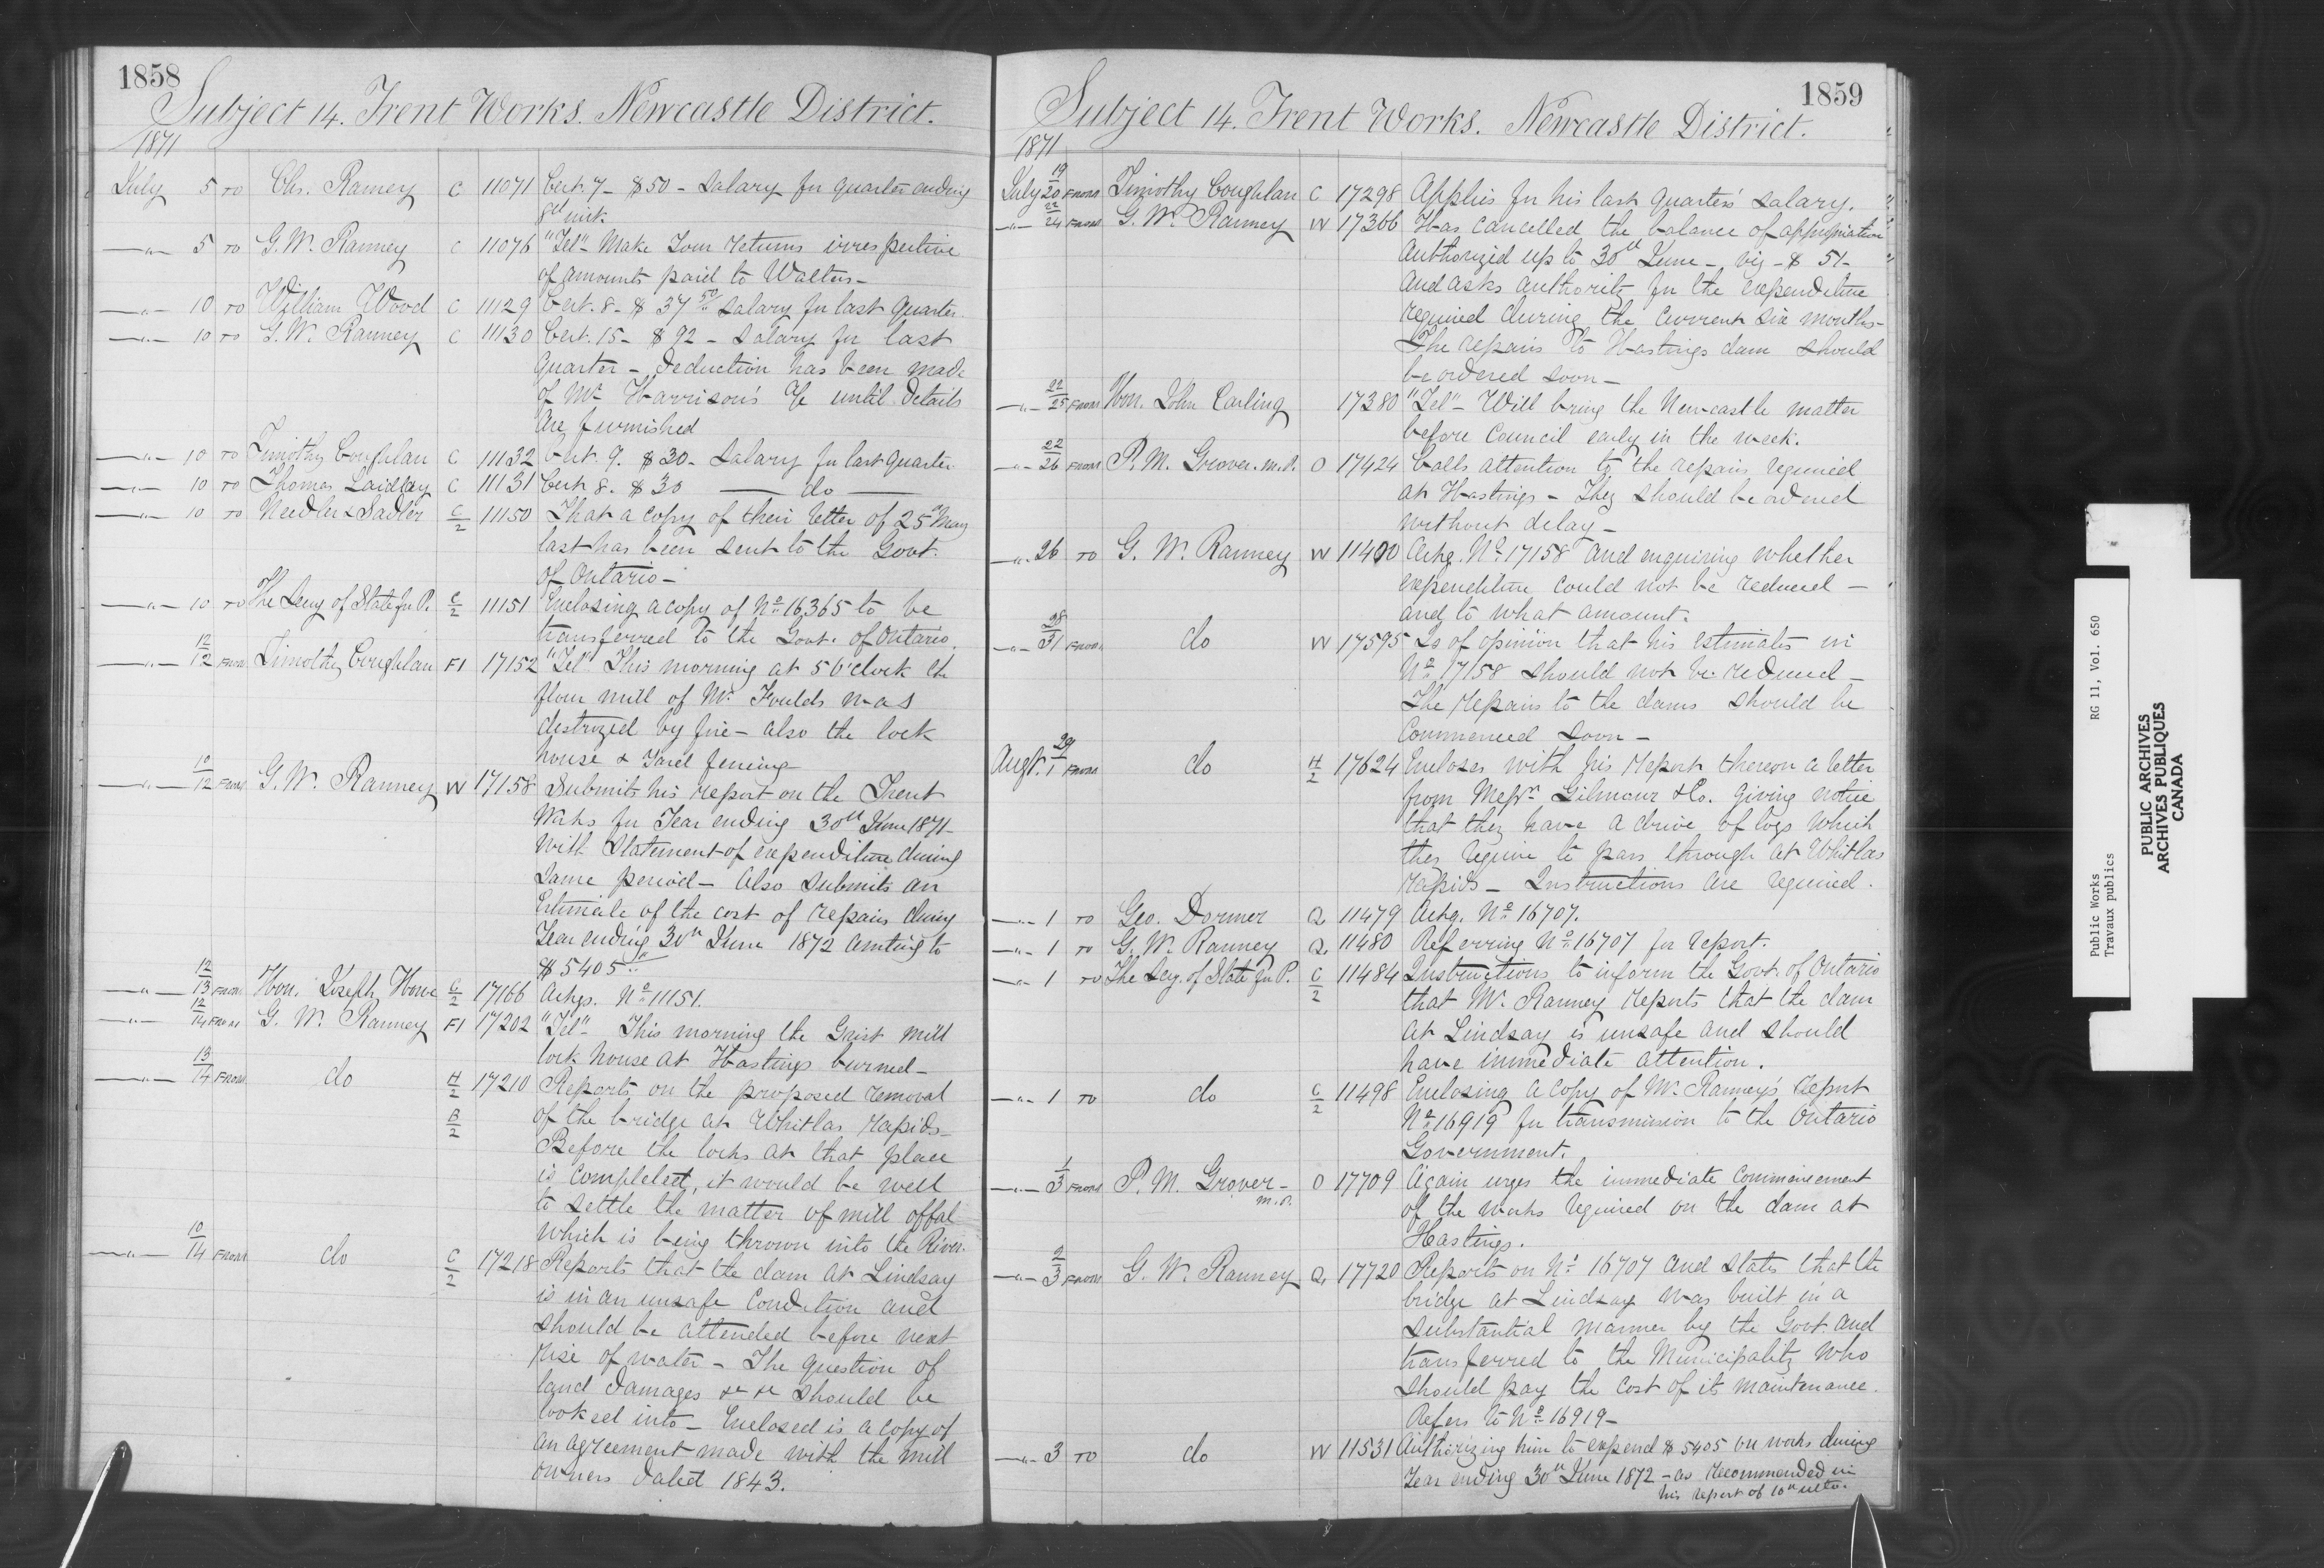 1858
Subject 14. Trent Works. Newcastle District.
1871
July 5 TO Chs. Ranney C 11071 Cert. 7 - $50 - Salary for quarter ending
8th inst.
—"— 5 TO G. W. Ranney C 11076 "Tel" - Make Your returns irrespective
of amounts paid to Walters -
—"— 10 TO William Wood C 11129 Cert. 8 - $37 50 Salary for last quarter
—"— 10 TO G. W. Ranney C 11130 Cert. 15 - $92 - Salary for last
quarter - Deduction has been made
of Mr. Harrison's a/c until details
are furnished
—"— 10 TO Timothy Coughlan C 11132 Cert. 9. $30 - Salary for last quarter
—"— 10 TO Thomas Laidley C 11131 Cert 8. $30 — do —
—"— 10 TO Needler & Sadler C/2 11150 That a copy of their letter of 25th May
last has been sent to the Govt.
of Ontario -
—"— 10 TO The Secy of State for P. C/2 11151 Enclosing a copy of No 16365 to be
transferred to the Govt. of Ontario.
—"— 12/12 FROM Timothy Coughlan F1 17152 "Tel" This morning at 5 O'clock the
flour mill of Mr. Foulds was
destroyed by fire - also the lock
house & Yard fencing
—"— 10/12 FROM G. W. Ranney W 17158 Submits his report on the Trent
Works for Year ending 30th June 1871 -
with Statement of expenditure during
same period - Also submits an
Estimate of the cost of repairs during
Year ending 30th June 1872 amting to
$5405
—"— 12/13 FROM Hon. Joseph Howe C/2 17166 Ackgs. No 11151.
—"— 12/14 FROM G. W. Ranney F1 17202 "Tel" This morning the Grist mill
lock house at Hastings burned -
—"— 13/14 FROM do H/2 17210 Reports on the proposed removal
B/2 of the bridge at Whitlas Rapids -
Before the locks at that place
is completed, it would be well
to settle the matter of mill offal
which is being thrown into the River.
—"— 10/14 FROM do C/2 17218 Reports that the dam at Lindsay
is in an unsafe condition and
should be attended before next
rise of water - The question of
land damages &c &c should be
looked into - Enclosed is a copy of
an agreement made with the mill
owners dated 1843.
1859
Subject 14. Trent Works. Newcastle District.
1871
July 19/20 FROM Timothy Coughlan C 17298 Applies for his last quarter's salary.
—"— 22/24 FROM G. W. Ranney W 17366 Has cancelled the balance of appropriation
authorized up to 30th June - viz - $51 -
and asks authority for the expenditure
required during the current six months -
The repairs to Hastings dam should
be ordered soon -
—"— 22/25 FROM Hon. John Carling 17380 "Tel" - Will bring the Newcastle matter
before Council early in the week.
—"— 22/26 FROM P. M. Grover. M.P. O 17424 Calls attention to the repairs required
at Hastings - They should be ordered
without delay -
—"— 26 TO G. W. Ranney W 11400 Ackg. No 17158 and enquiring whether
expenditure could not be reduced -
and to what amount.
—"— 28/31 FROM do W 17595 Is of opinion that his estimates in
No 17158 should not be reduced -
The repairs to the dams should be
commenced soon -
Augt. 29/1 FROM do H/2 17624 Encloses with his report thereon a letter
from Messrs Gilmour & Co. giving notice
that they have a drive of logs which
they require to pass through at Whitlas
Rapids - Instructions are required.
—"— 1 TO Geo. Dormer Q 11479 Ackg. No 16707.
—"— 1 TO G. W. Ranney Q 11480 Referring No 16707 for report.
—"— 1 TO The Secy. of State for P. C/2 11484 Instructions to inform the Govt. of Ontario
that Mr. Ranney reports that the dam
at Lindsay is unsafe and should
have immediate attention.
—"— 1 TO do C/2 11498 Enclosing a copy of Mr. Ranney's report
No 16919 for transmission to the Ontario
Government.
—"— 1/3 FROM P. M. Grover - M.P. O 17709 Again urges the immediate commencement
of the works required on the dam at
Hastings.
—"— 2/3 FROM G. W. Ranney Q 17720 Reports on No 16707 and states that the
bridge at Lindsay was built in a
substantial manner by the Govt. and
transferred to the Municipality who
should pay the cost of its maintenance.
Refers to No 16919 -
—"— 3 TO do W 11531 Authorizing him to expend $5405 on works during
Year ending 30th June 1872 - as recommended in
his report of 10th ulto.
Public Works RG 11, Vol. 650
Travaux publics
PUBLIC ARCHIVES
ARCHIVES PUBLIQUES
CANADA